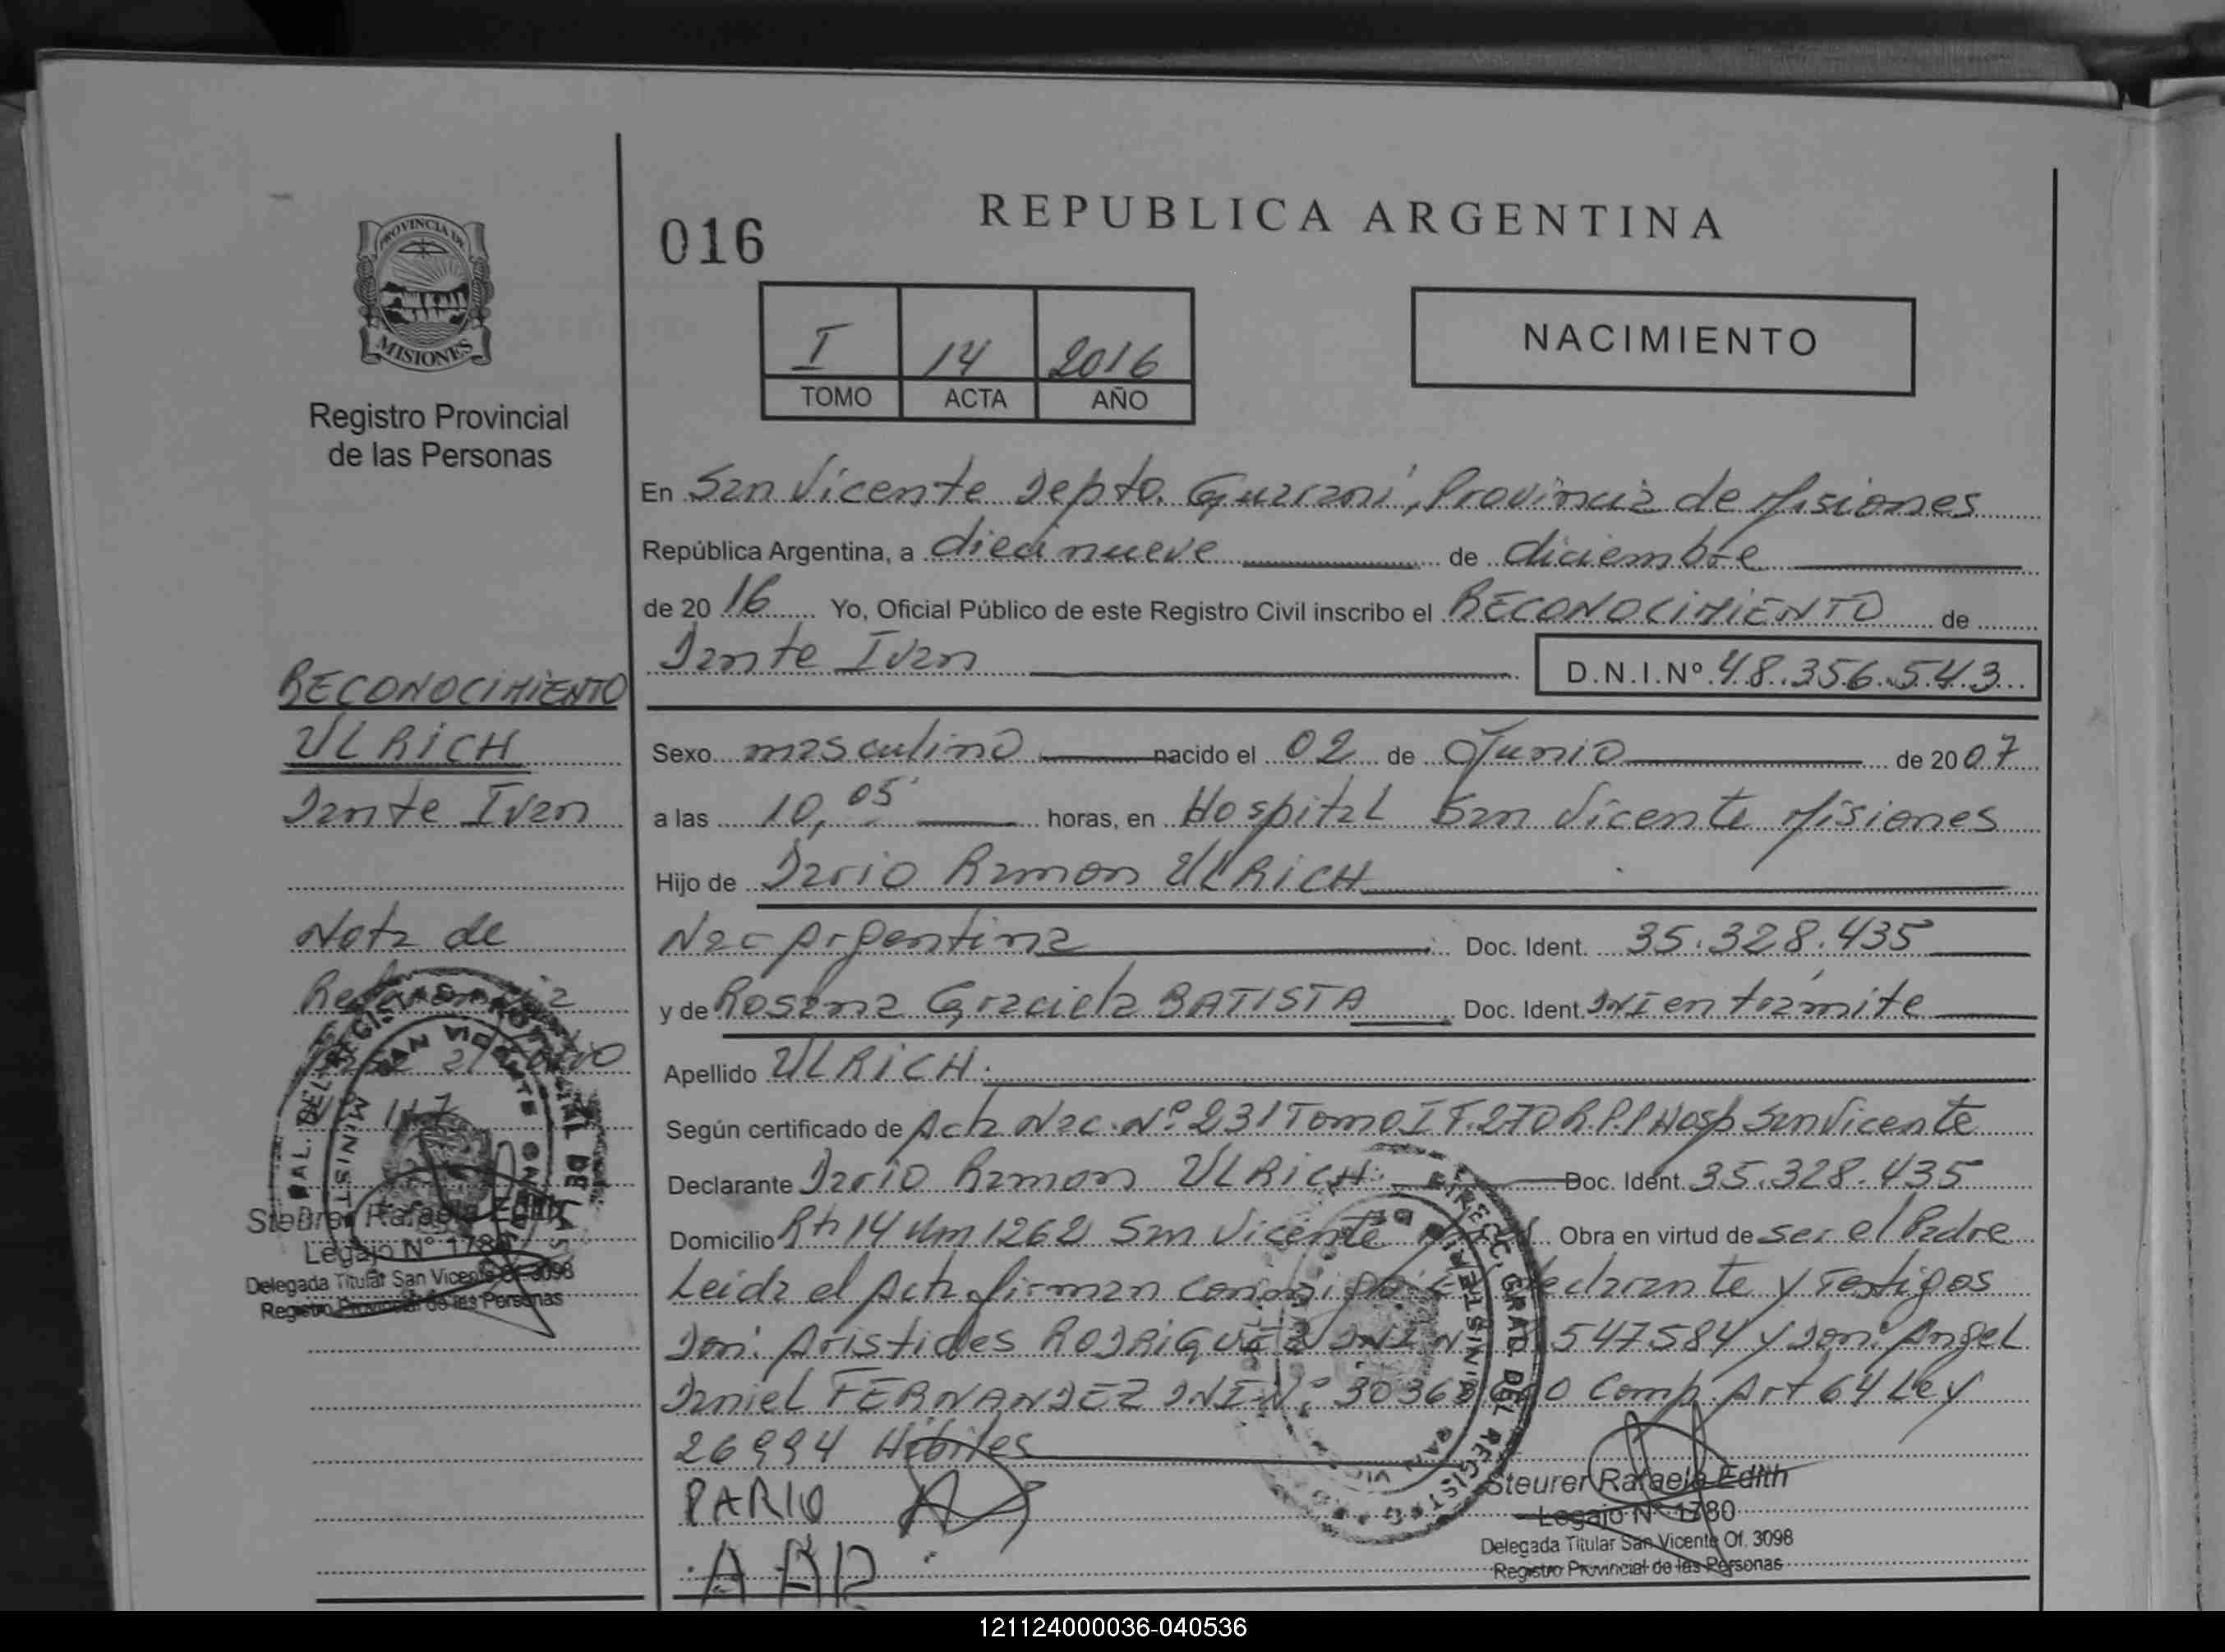 PROVINCIA DE
MISIONES
Registro Provincial
de las Personas
016
REPUBLICA ARGENTINA
I 14 2016
TOMO ACTA AÑO
NACIMIENTO
En San Vicente Depto. Guaraní, Provincia de Misiones
República Argentina, a diecinueve de diciembre
de 20 16 Yo, Oficial Público de este Registro Civil inscribo el RECONOCIMIENTO de
Dante Ivan D.N.I.Nº 48.356.543
Sexo masculino nacido el 02 de Junio de 20 07
a las 10,05 horas, en Hospital San Vicente Misiones
Hijo de Dario Ramon ULRICH
Nac Argentina Doc. Ident. 35.328.435
y de Rosana Graciela BATISTA Doc. Ident. DNI en trámite
Apellido ULRICH.
Según certificado de Acta Nac. Nº 231 Tomo I F. 270 R.P.P Hosp San Vicente
Declarante Dario Ramon ULRICH. Doc. Ident. 35.328.435
Domicilio Rta 14 Km 1262 San Vicente Obra en virtud de ser el Padre
Leida el Acta firman conmigo declarante y Testigos
Don: Aristides RODRIGUEZ DNI N 547584 y Don: Angel
Daniel FERNANDEZ DNI Nº 3036 Comp. Art 64 Ley
26994 Hábiles
DARIO
A AR
Steurer Rafaela Edith
Legajo Nº 1780
Delegada Titular San Vicente Of. 3098
Registro Provincial de las Personas
RECONOCIMIENTO
ULRICH
Dante Ivan
Nota de
Referencia
117
Steurer Rafaela Edith
Legajo Nº 1780
Delegada Titular San Vicente Of. 3098
Registro Provincial de las Personas
121124000036-040536